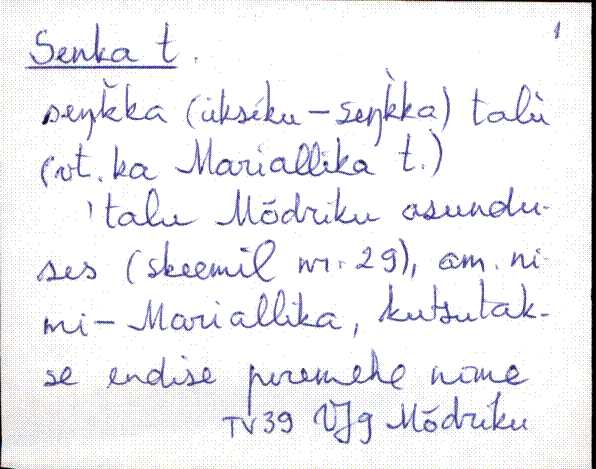 1
Senka t.
seŋ̀kka (üksiku – seŋ̀kka) talù
(vt. ka Mariallika t.)
'talu Mõdriku asundu-
ses (skeemil nr. 29), am. ni-
mi – Mariallika, kutsutak-
se endise peremehe nime
TV39 VJg Mõdriku